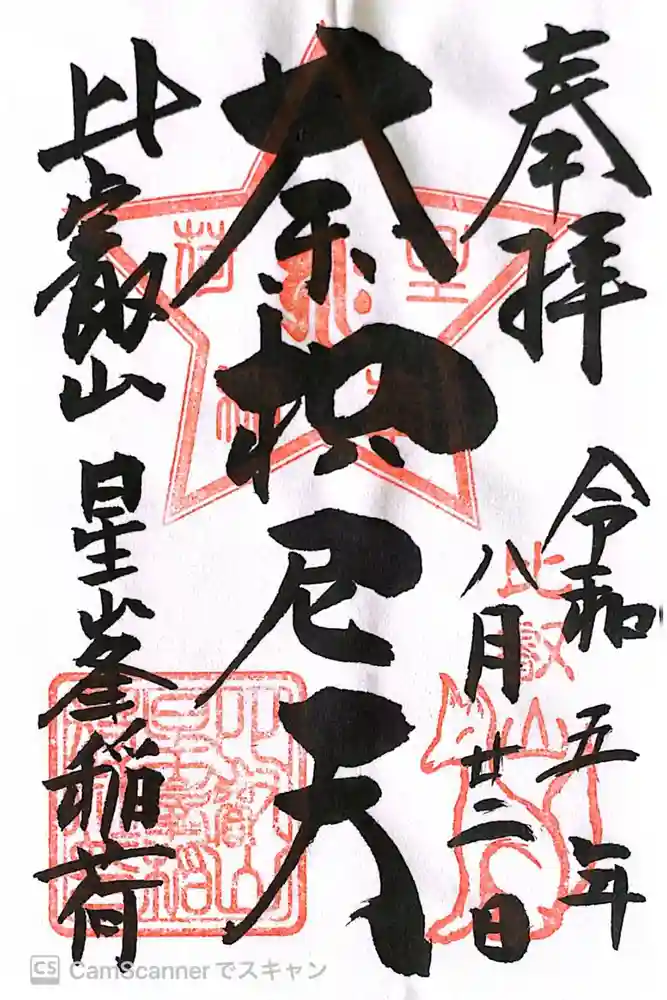 奉拝
令和五年
八月廿二日
荼枳尼天
比叡山 星峯稲荷
比叡
CS CamScannerでスキャン